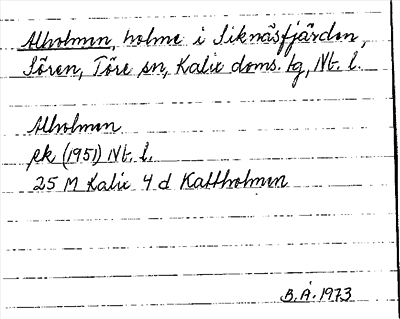 Alholmen, holme i Siknäsfjärden,
Sören, Töre sn, Kalix doms. tg, Nt. l.
Alholmen
ek (1951) Nt. l.
25 M Kalix 4 d Kattholmen
B.Å. 1973